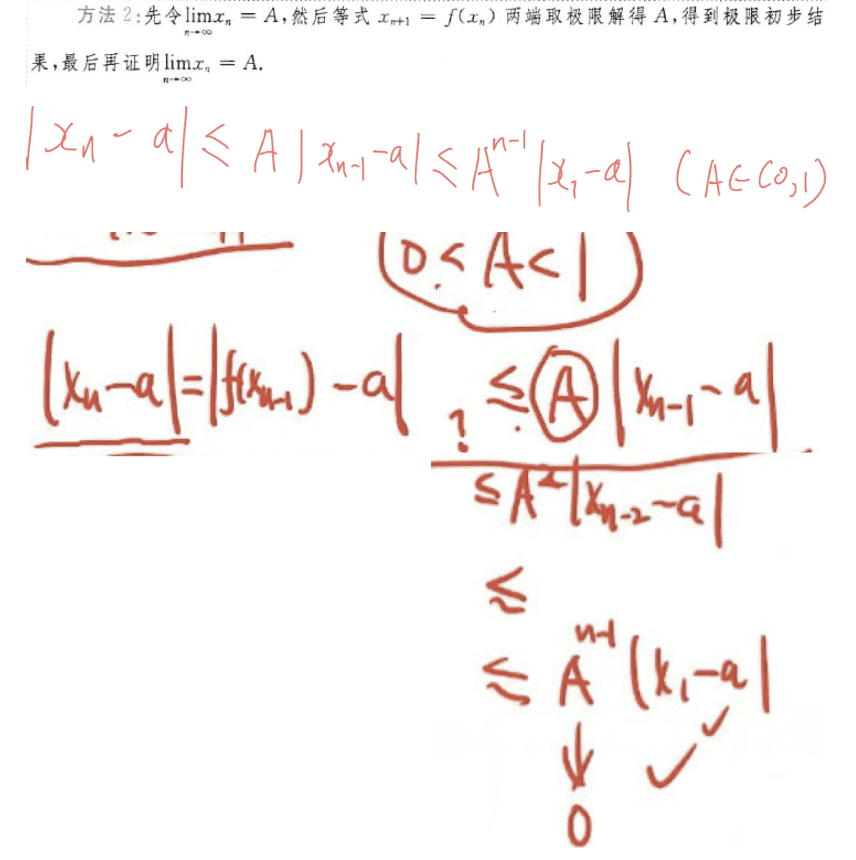 方法 2:先令 lim_{n→∞} x_n = A,然后等式 x_{n+1} = f(x_n) 两端取极限解得 A,得到极限初步结
果,最后再证明 lim_{n→∞} x_n = A.
|x_n - a| ≤ A|x_{n-1} - a| ≤ A^{n-1}|x_1 - a| (A∈(0,1)
0 < A < 1
|x_n - a| = |f(x_{n-1}) - a| ? ≤ A |x_{n-1} - a|
≤ A^2 |x_{n-2} - a|
≤
≤ A^{n-1} |x_1 - a|
↓
0